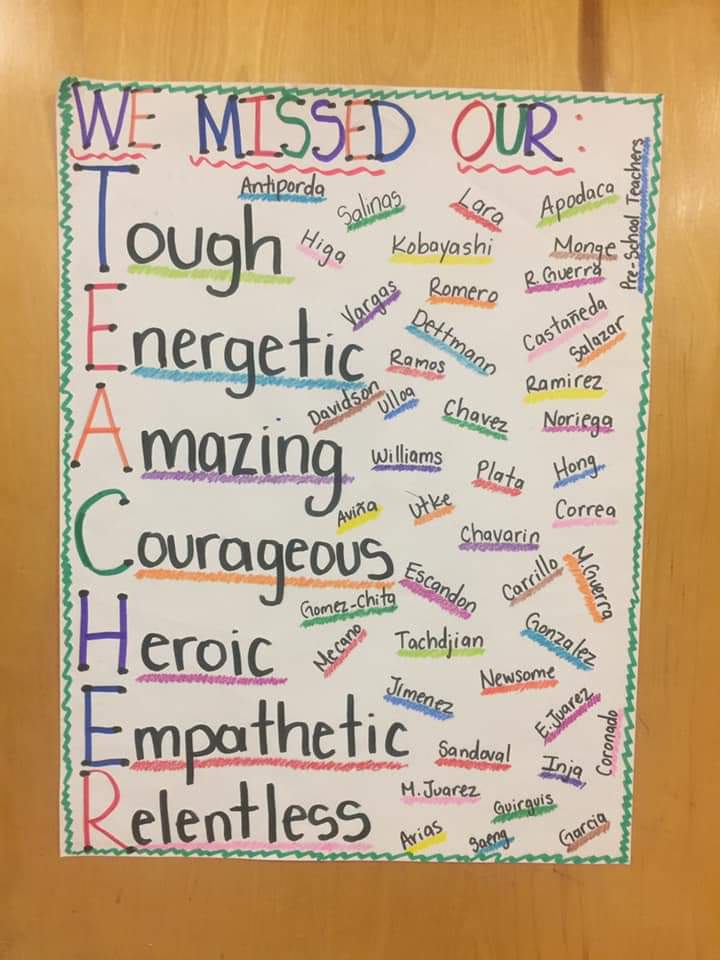 WE MISSED OUR:
Tough
Energetic
Amazing
Courageous
Heroic
Empathetic
Relentless
Antiporda
Salinas
Lara
Apodaca
Pre-School Teachers
Higa
Kobayashi
Monge
R. Guerra
Vargas
Romero
Dettmann
Castañeda
Salazar
Ramos
Ramirez
Davidson
Ulloa
Chavez
Noriega
Williams
Plata
Hong
Aviña
Utke
Correa
Chavarin
Escandon
Carrillo
M. Guerra
Gomez-Chita
Mecano
Tachdjian
Gonzalez
Newsome
Jimenez
E. Juarez
Coronado
Sandoval
Inja
M. Juarez
Guirguis
Arias
Saeng
Garcia